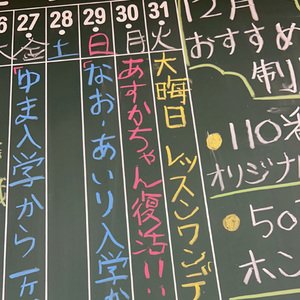 27 28 29 30 31
金 土 日 月 火
ゆま入学から一
なお・あいり入学か
あすかちゃん復活!!
大晦日 レッスンワンデ
12月
おすすめ
制
110
オリジナ
50
ホン